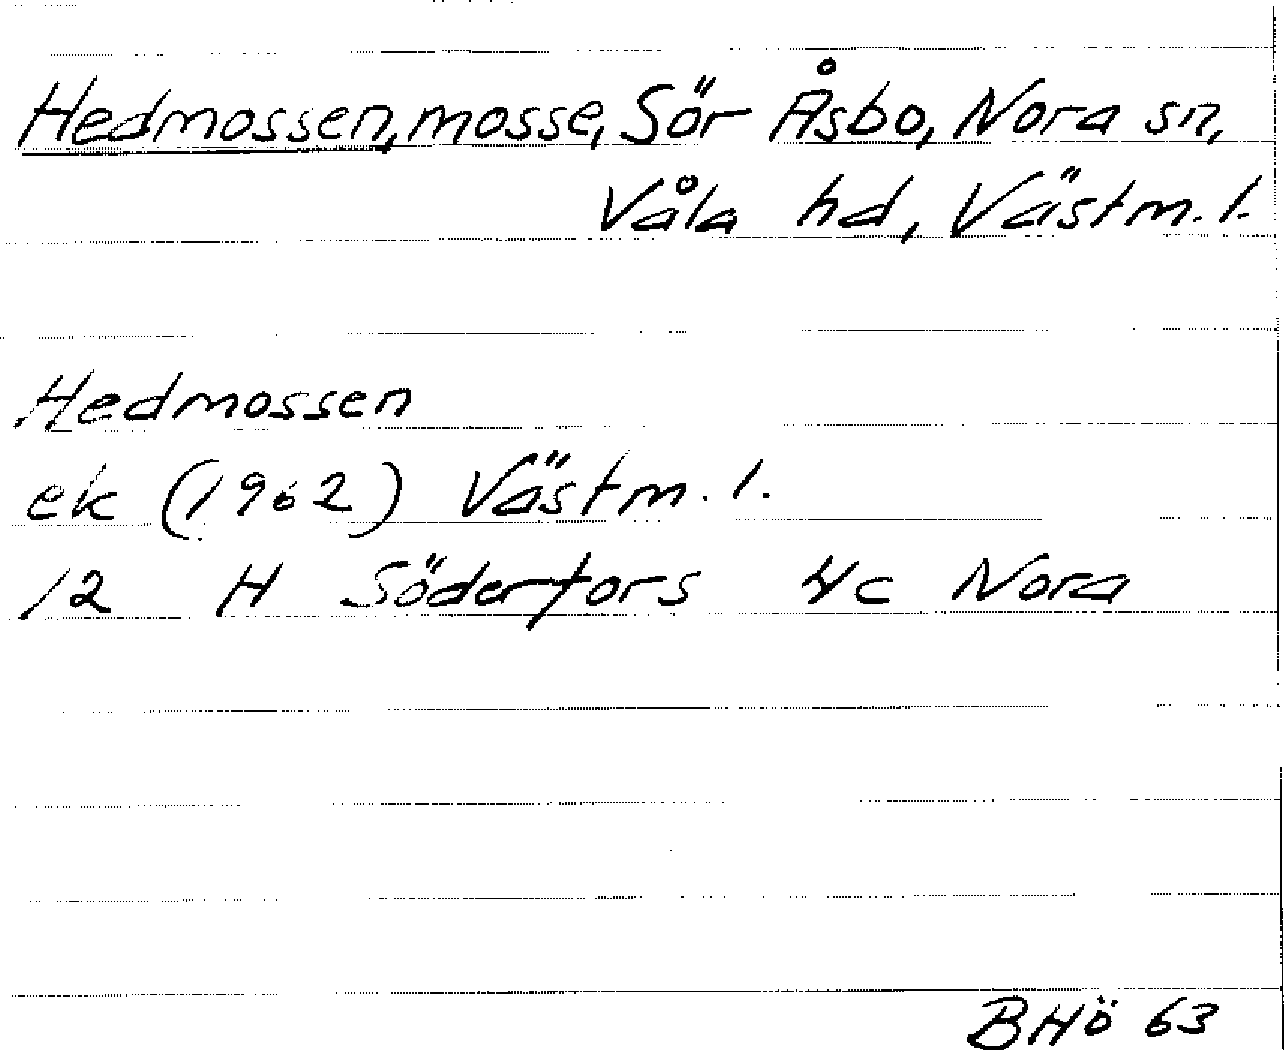 Hedmossen, mosse, Sör Åsbo, Nora sn,
Våla hd, Västm. l.
Hedmossen
ek (1962) Västm. l.
12 H Söderfors 4c Nora
BHö 63